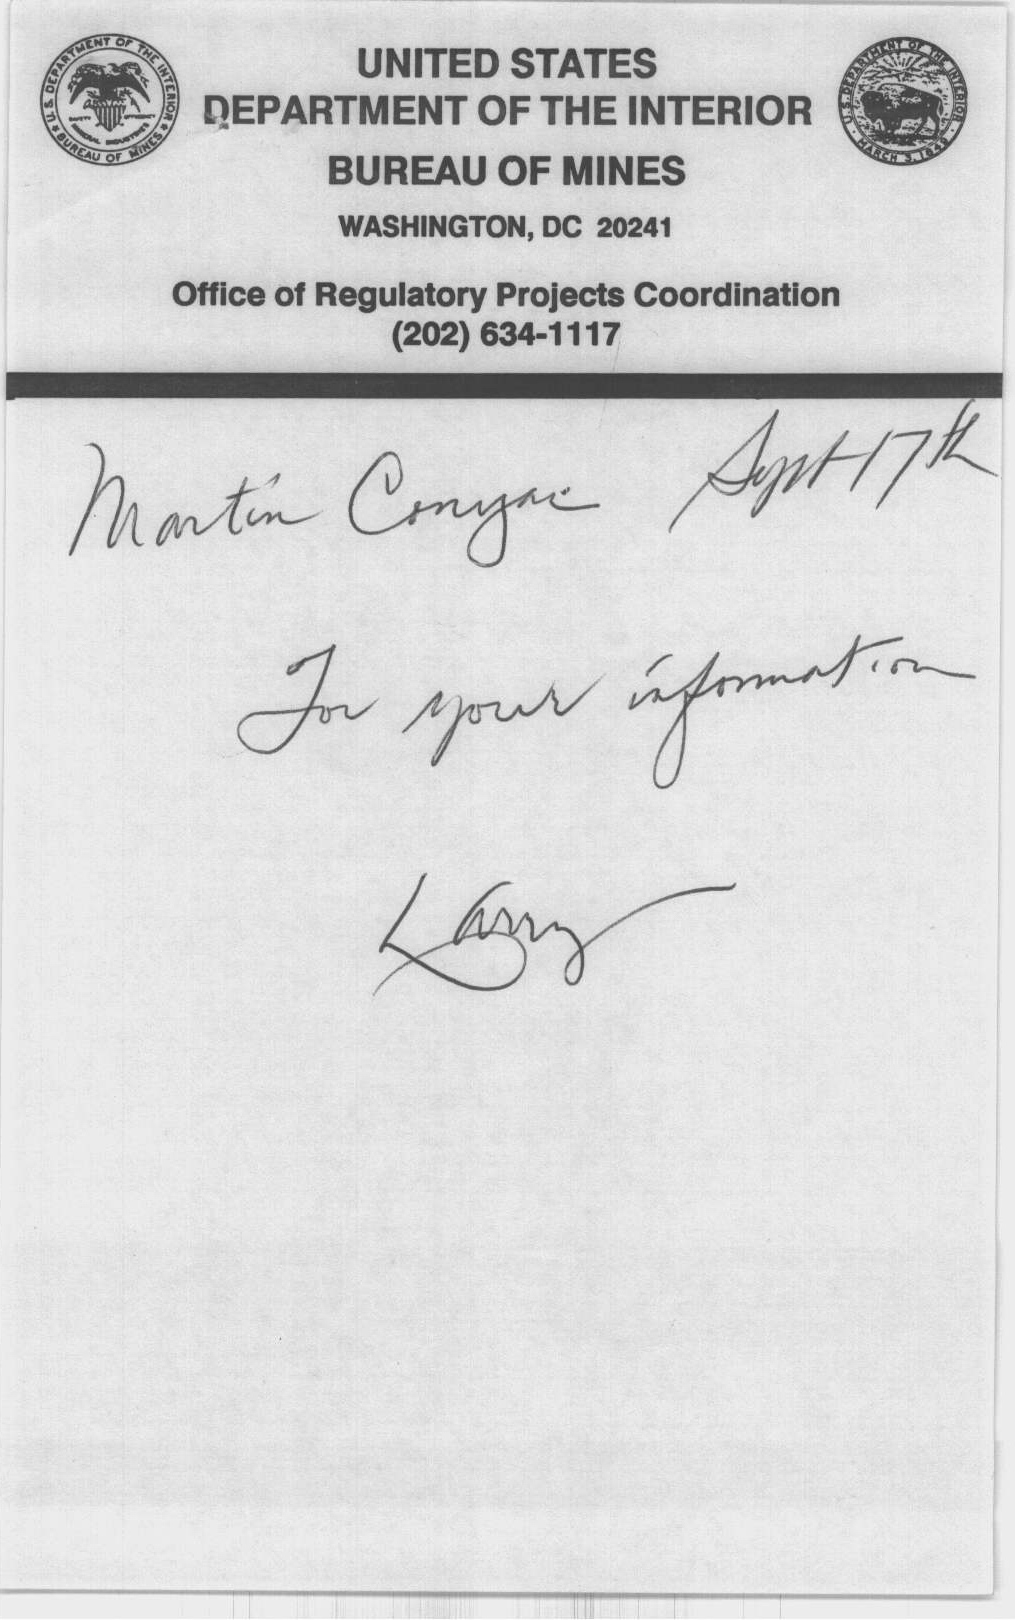 U.S. DEPARTMENT OF THE INTERIOR
BUREAU OF MINES
UNITED STATES
DEPARTMENT OF THE INTERIOR
BUREAU OF MINES
WASHINGTON, DC 20241
U.S. DEPARTMENT OF THE INTERIOR
MARCH 3, 1849
Office of Regulatory Projects Coordination
(202) 634-1117
Martin Conyac Sept 17th
For your information
Larry